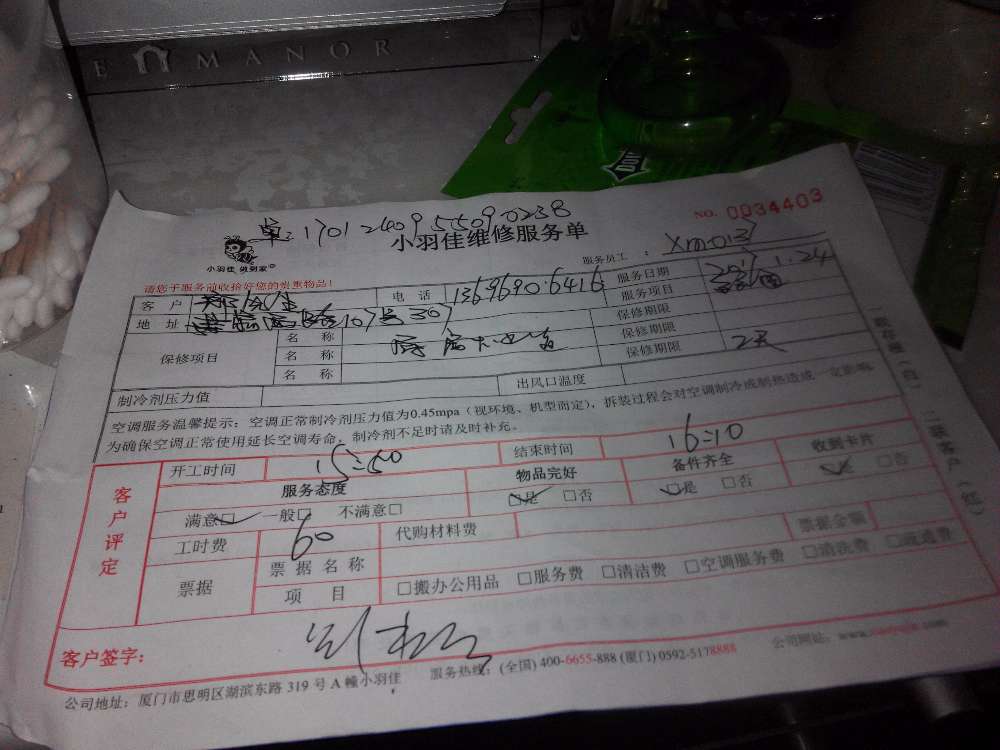 E MANOR
单:1701240955090238
NO. 0034403
小羽佳 做到家
小羽佳维修服务单
服务员工 :
请您于服务前收拾好您的贵重物品!
客 户 电 话 13696906416 服务日期 1.24
地 址 107号307 服务项目
保修项目 名 称 保修期限
名 称 保修期限
名 称 保修期限 2天
制冷剂压力值 出风口温度
空调服务温馨提示:空调正常制冷剂压力值为0.45mpa(视环境、机型而定),拆装过程会对空调制冷或制热造成一定影响
为确保空调正常使用延长空调寿命,制冷剂不足时请及时补充。
客户评定
开工时间 15:50 结束时间 16:10
服务态度 物品完好 备件齐全 收到卡片
满意□ 一般□ 不满意□ □是 □否 □是 □否 □是 □否
工时费 60 代购材料费 票据金额
票据 票据名称
项 目 □搬办公用品 □服务费 □清洁费 □空调服务费 □清洗费 □疏通费
客户签字:
公司地址:厦门市思明区湖滨东路 319 号 A 幢小羽佳 服务热线:(全国) 400-6655-888 (厦门) 0592-5178888 公司网址: